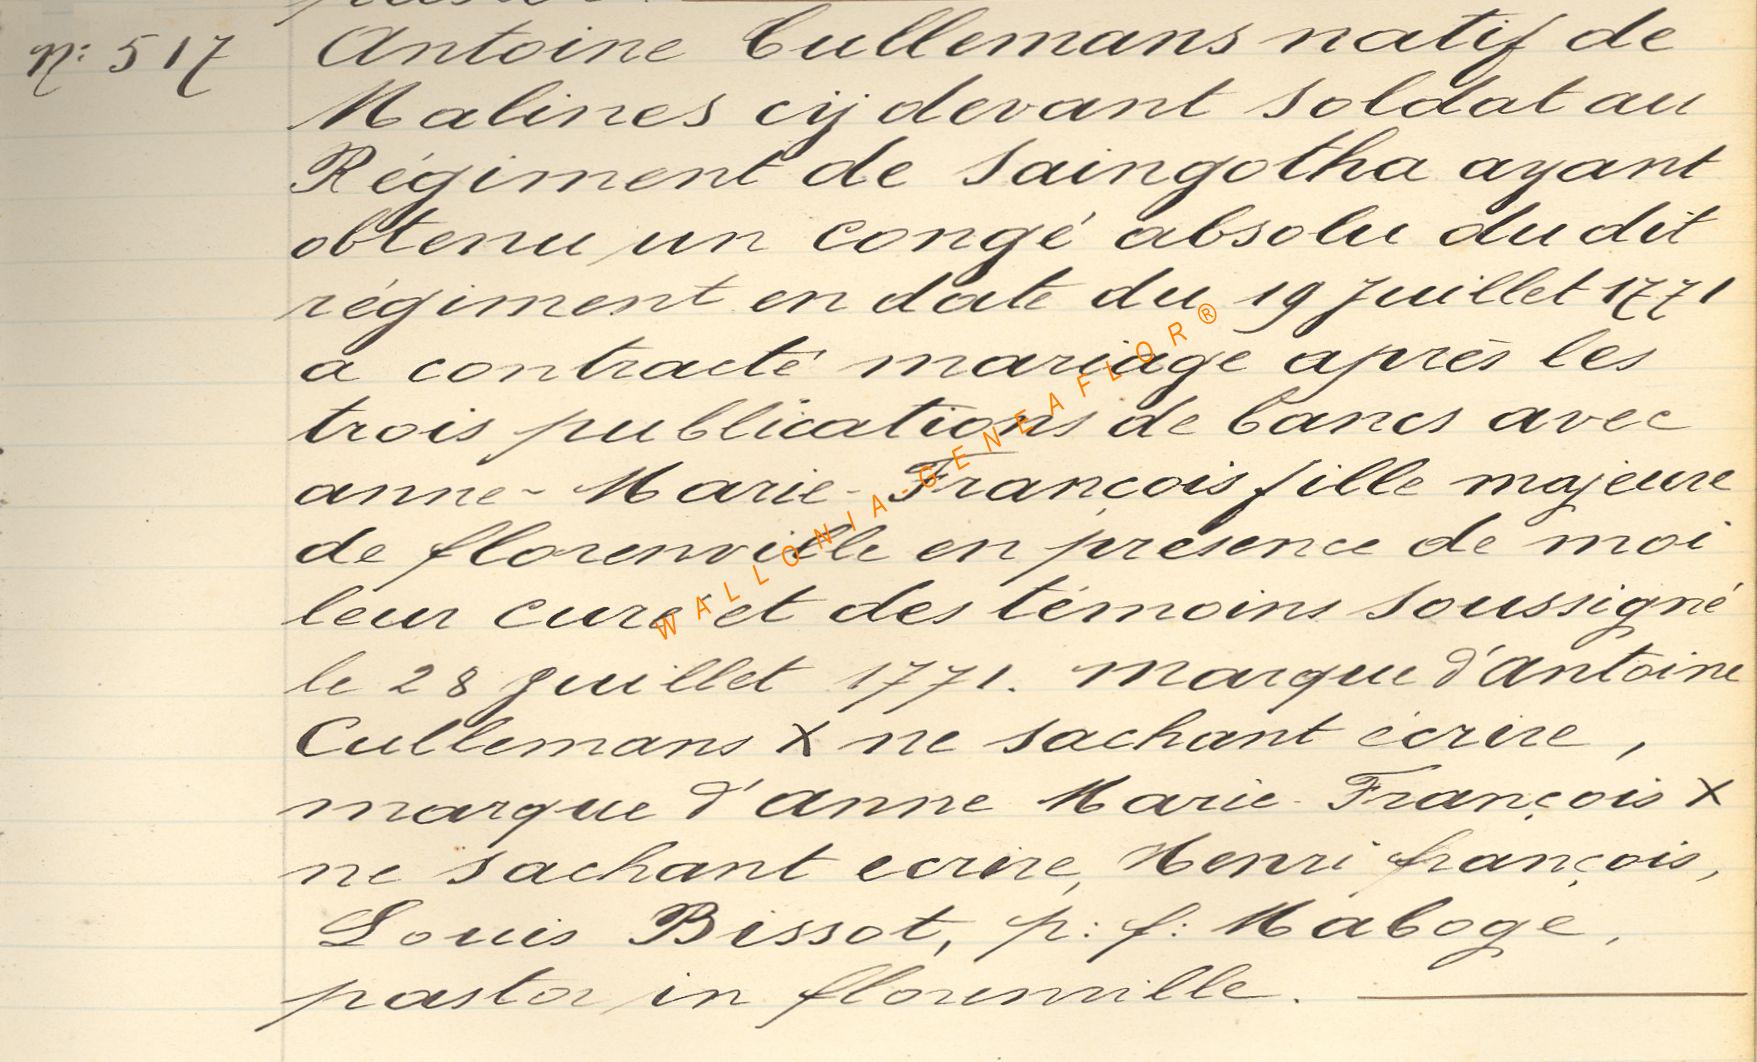 N: 517
Antoine Cullemans natif de
Malines cij devant soldat au
Régiment de Saingotha ayant
obtenu un congé absolu du dit
régiment en date du 19 Juillet 1771
a contracté mariage après les
trois publications de bancs avec
anne-Marie-François fille majeure
de florenville en présence de moi
leur curé et des témoins soussigné
le 28 Juillet 1771. marque d'antoine
Cullemans X ne sachant écrire,
marque d'anne Marie-François X
ne sachant ecrire, Henri françois,
Louis Bissot, p: f: Maboge,
pastor in florenville.
WALLONIA-GENEAFLOR®